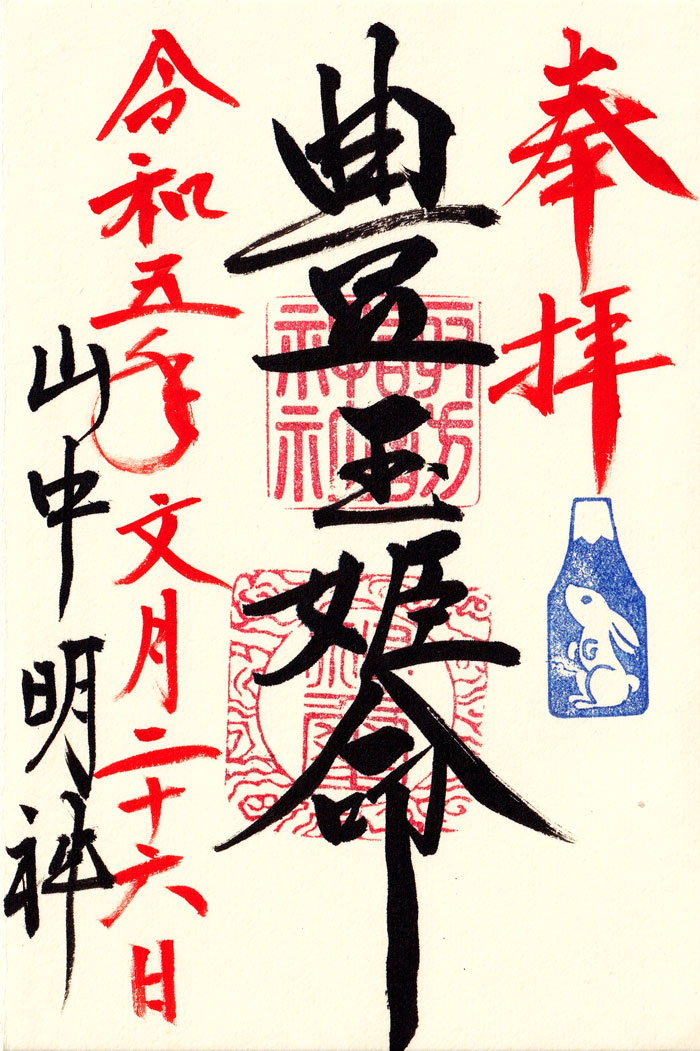 奉拝
豊玉姫命
令和五年文月二十六日
山中明神